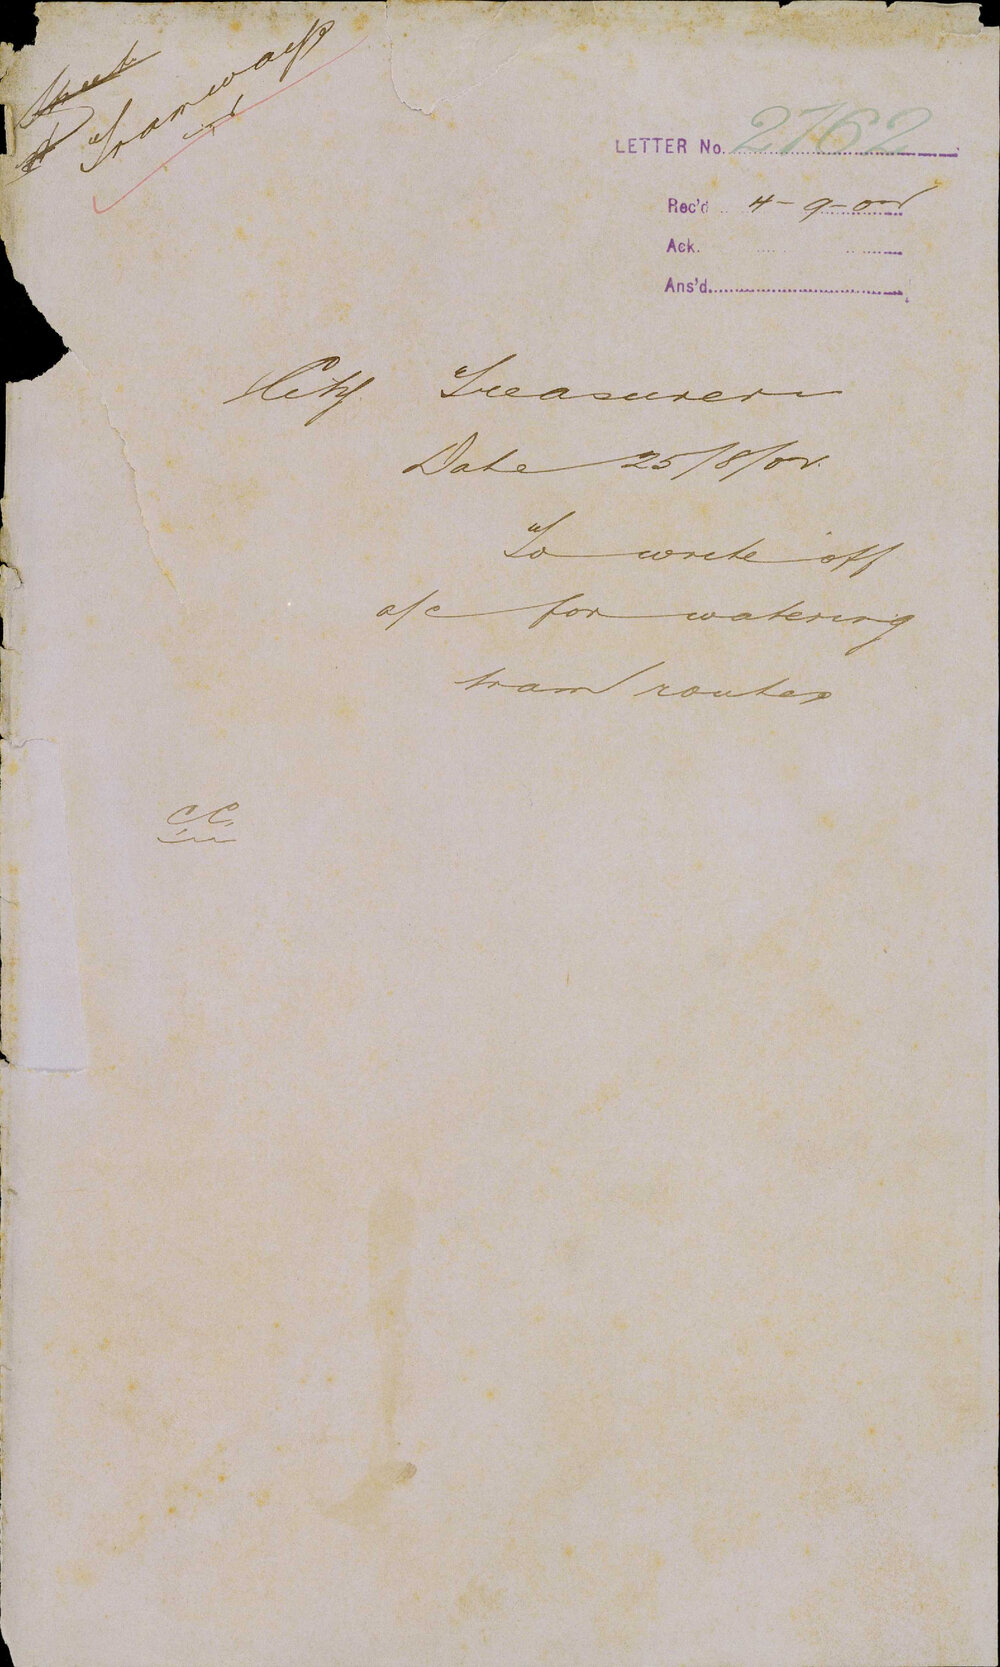 Streets
Tramways
LETTER No. 2762
Rec'd 4-9-02
Ack.
Ans'd.
City Treasurer
Date 25/8/02.
To write off
a/c for watering
tram routes
CC.